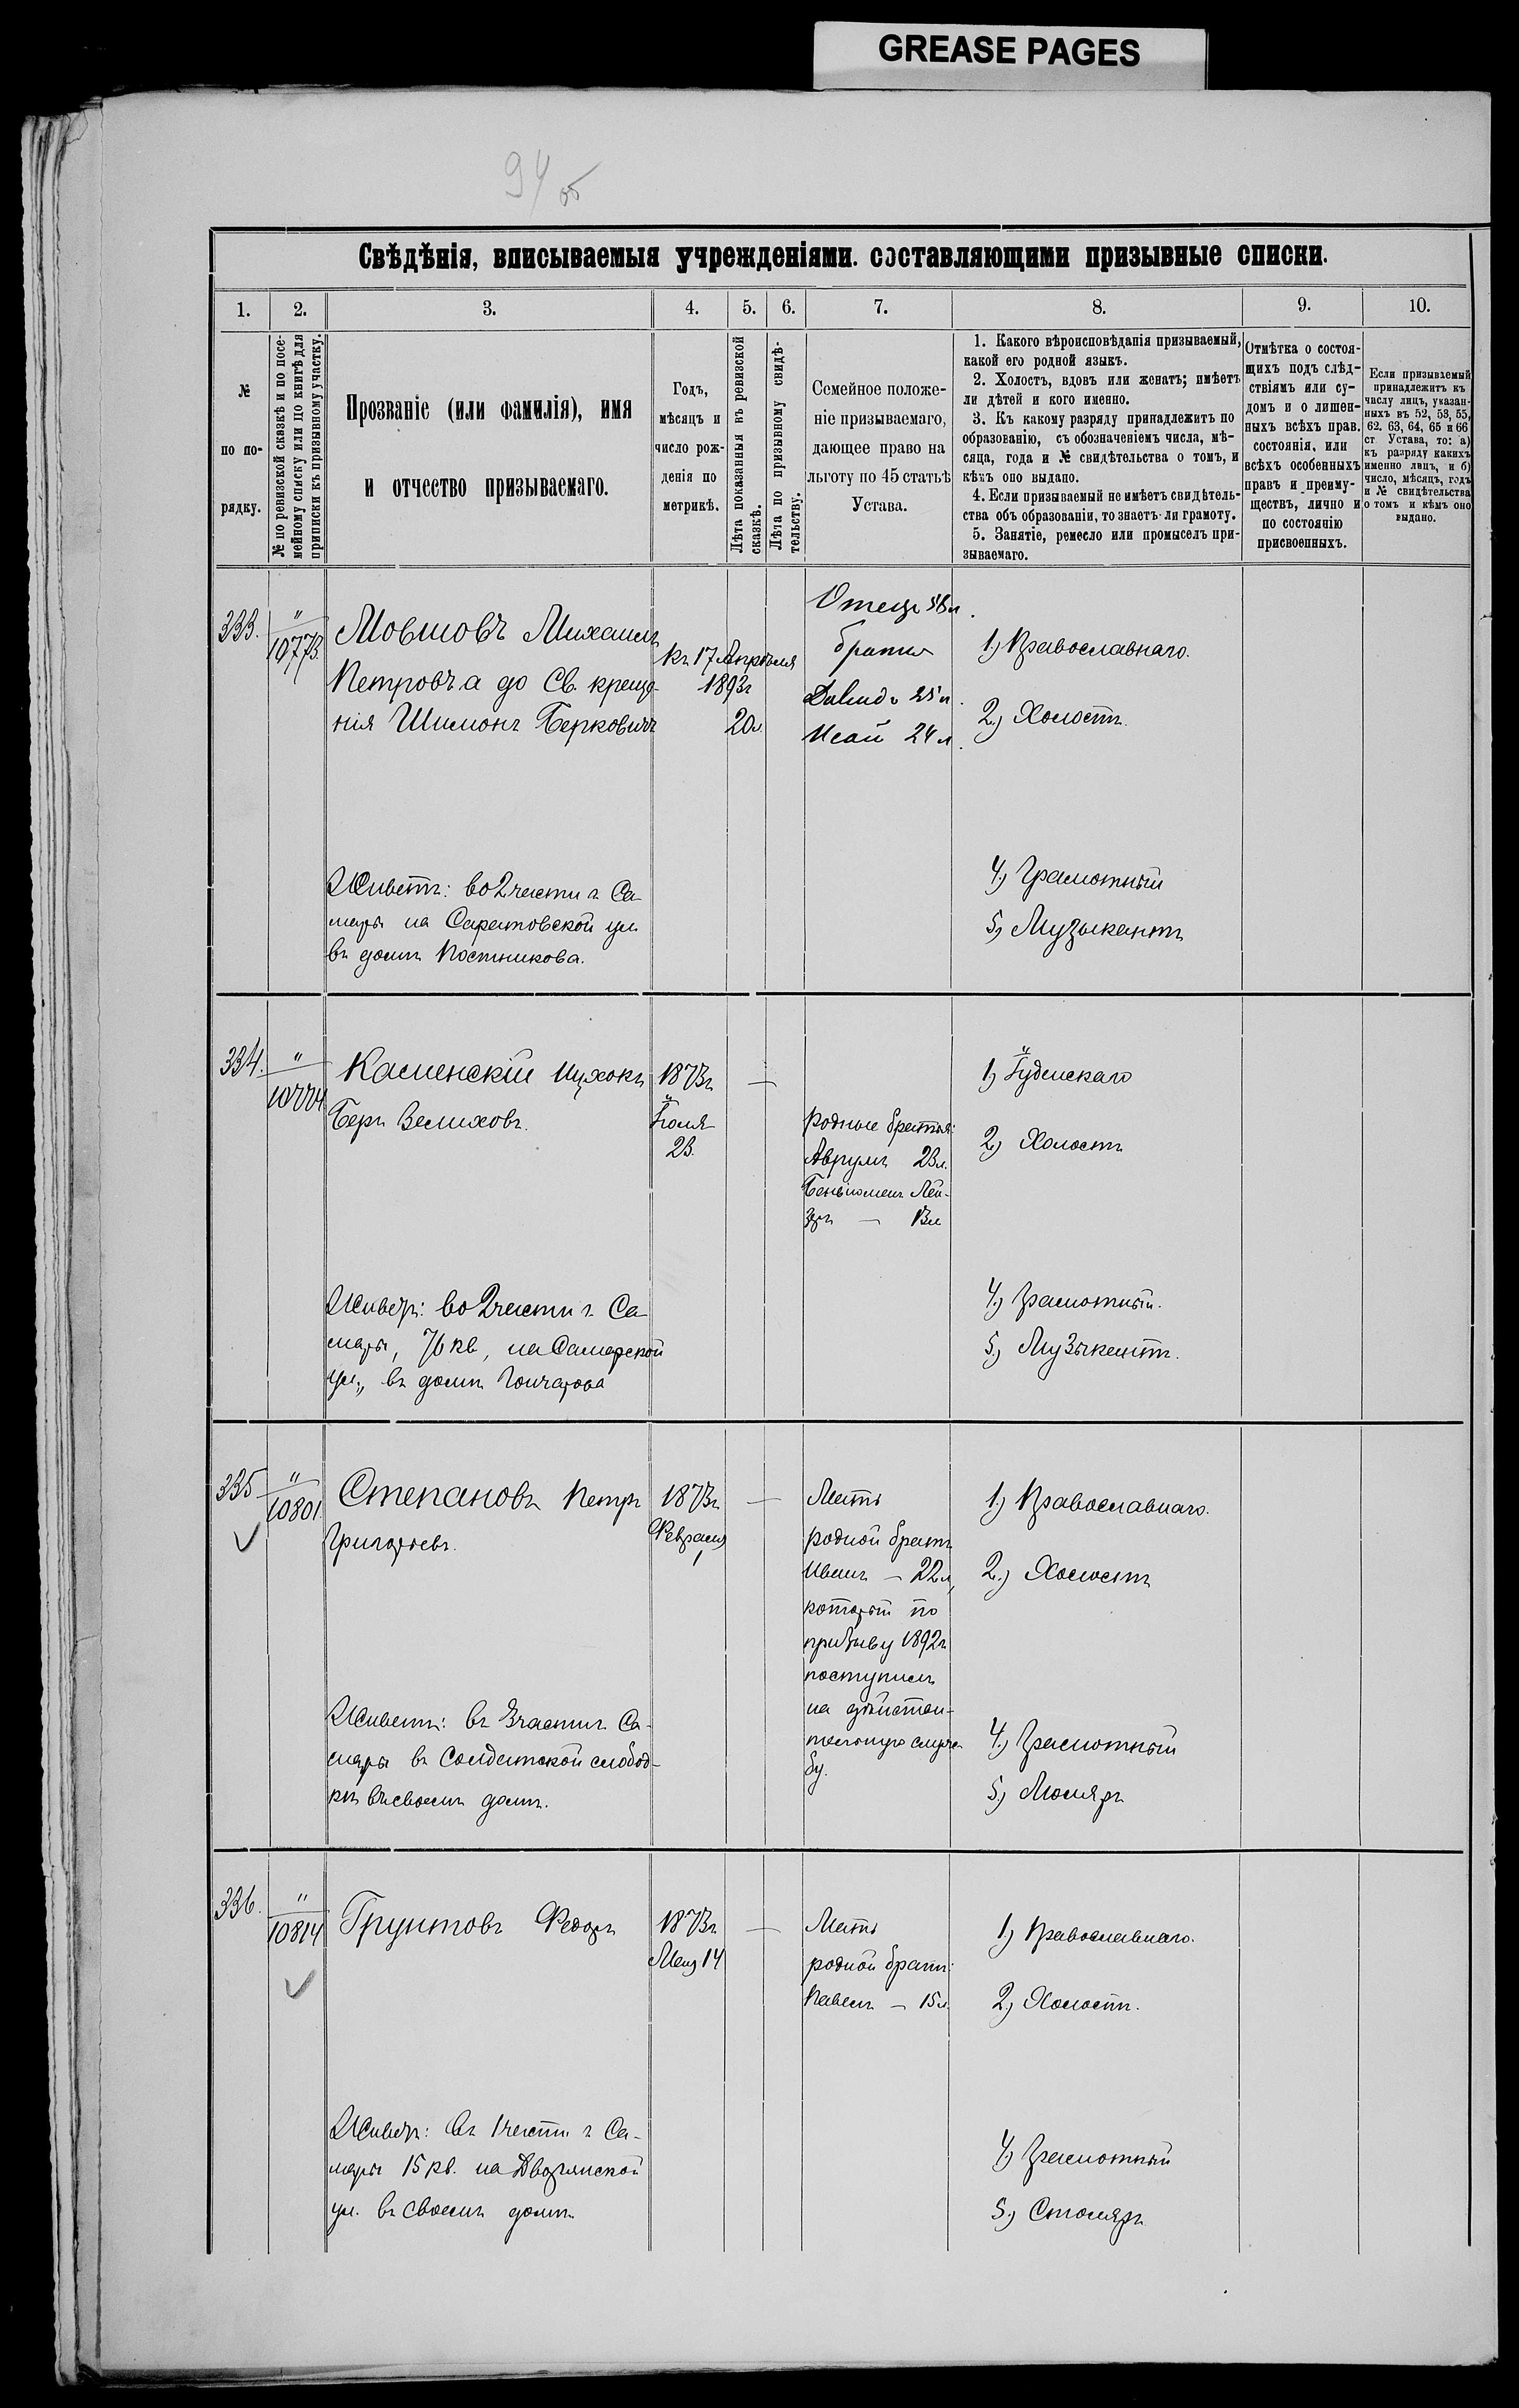 GREASE PAGES
94 об
Свѣдѣнія, вписываемыя учрежденіями. составляющими призывные списки.
1. 2. 3. 4. 5. 6. 7. 8. 9. 10.
№
по по-
рядку.
№ по ревизской сказкѣ и по посе-
мейному списку или по книгѣ для
приписки къ призывному участку.
Прозваніе (или фамилія), имя
и отчество призываемаго.
Годъ,
мѣсяцъ и
число рож-
денія по
метрикѣ.
Лѣта показанныя въ ревизской
сказкѣ.
Лѣта по призывному свидѣ-
тельству.
Семейное положе-
ніе призываемаго,
дающее право на
льготу по 45 статьѣ
Устава.
1. Какого вѣроисповѣданія призываемый,
какой его родной языкъ.
2. Холостъ, вдовъ или женатъ; имѣетъ
ли дѣтей и кого именно.
3. Къ какому разряду принадлежитъ по
образованію, съ обозначеніемъ числа, мѣ-
сяца, года и № свидѣтельства о томъ, и
кѣмъ оно выдано.
4. Если призываемый не имѣетъ свидѣтель-
ства объ образованіи, то знаетъ-ли грамоту.
5. Занятіе, ремесло или промыселъ при-
зываемаго.
Отмѣтка о состоя-
щихъ подъ слѣд-
ствіямъ или су-
домъ и о лишен-
ныхъ всѣхъ прав.
состоянія, или
всѣхъ особенныхъ
правъ и преиму-
ществъ, лично и
по состоянію
присвоенныхъ.
Если призываемый
принадлежитъ къ
числу лицъ, указан-
ныхъ въ 52, 53, 55,
62. 63, 64, 65 и 66
ст Устава, то: а)
къ разряду какихъ
именно лицъ, и б)
число, мѣсяцъ, годъ
и № свидѣтельства
о томъ и кѣмъ оно
выдано.
333.
"
10773.
Мовшовъ Михаилъ
Петровъ а до Св. креще-
нія Шимонъ Берковичъ
къ 17 Апрѣля
1893г
20л.
Отецъ 58л.
братья
Давидъ 25л.
Исай 24л.
1) Православнаго.
2) Холостъ.
4) Грамотный
5) Музыкантъ
Живетъ: во 2 части г. Са-
мары на Саратовской ул.
въ домѣ Постникова.
334.
"
10774
Каменскій Ицхокъ
Беръ Велиховъ.
1873г
Іюля
23.
—
родные братья:
Аврумъ 23л.
Беньіоменъ Лей-
зеръ — 13л
1) Іудейскаго
2) Холостъ
4) Грамотный.
5) Музыкантъ.
Живетъ: во 2 части г. Са-
мары, 76 кв, на Самарской
ул., въ домѣ Гончарова
335
"
10801.
Степановъ Петръ
Григорьевъ.
1873г
Февраля
1
—
Мать
родной братъ
Иванъ — 22л,
который по
призыву 1892г
поступилъ
на дѣйстви-
тельную служ-
бу.
1) Православнаго.
2) Холостъ
4) Грамотный
5) Маляръ
Живетъ: въ 3 части г. Са-
мары въ Солдатской слобод-
кѣ въ своемъ домѣ.
336.
"
10814
Грунтовъ Федоръ
1873г
Мая 14
—
Мать
родной братъ:
Павелъ — 15л.
1) Православнаго.
2) Холостъ.
4) Грамотный
5) Столяръ
Живетъ: въ 1 части г Са-
мары 15 кв. на Дворянской
ул. въ своемъ домѣ